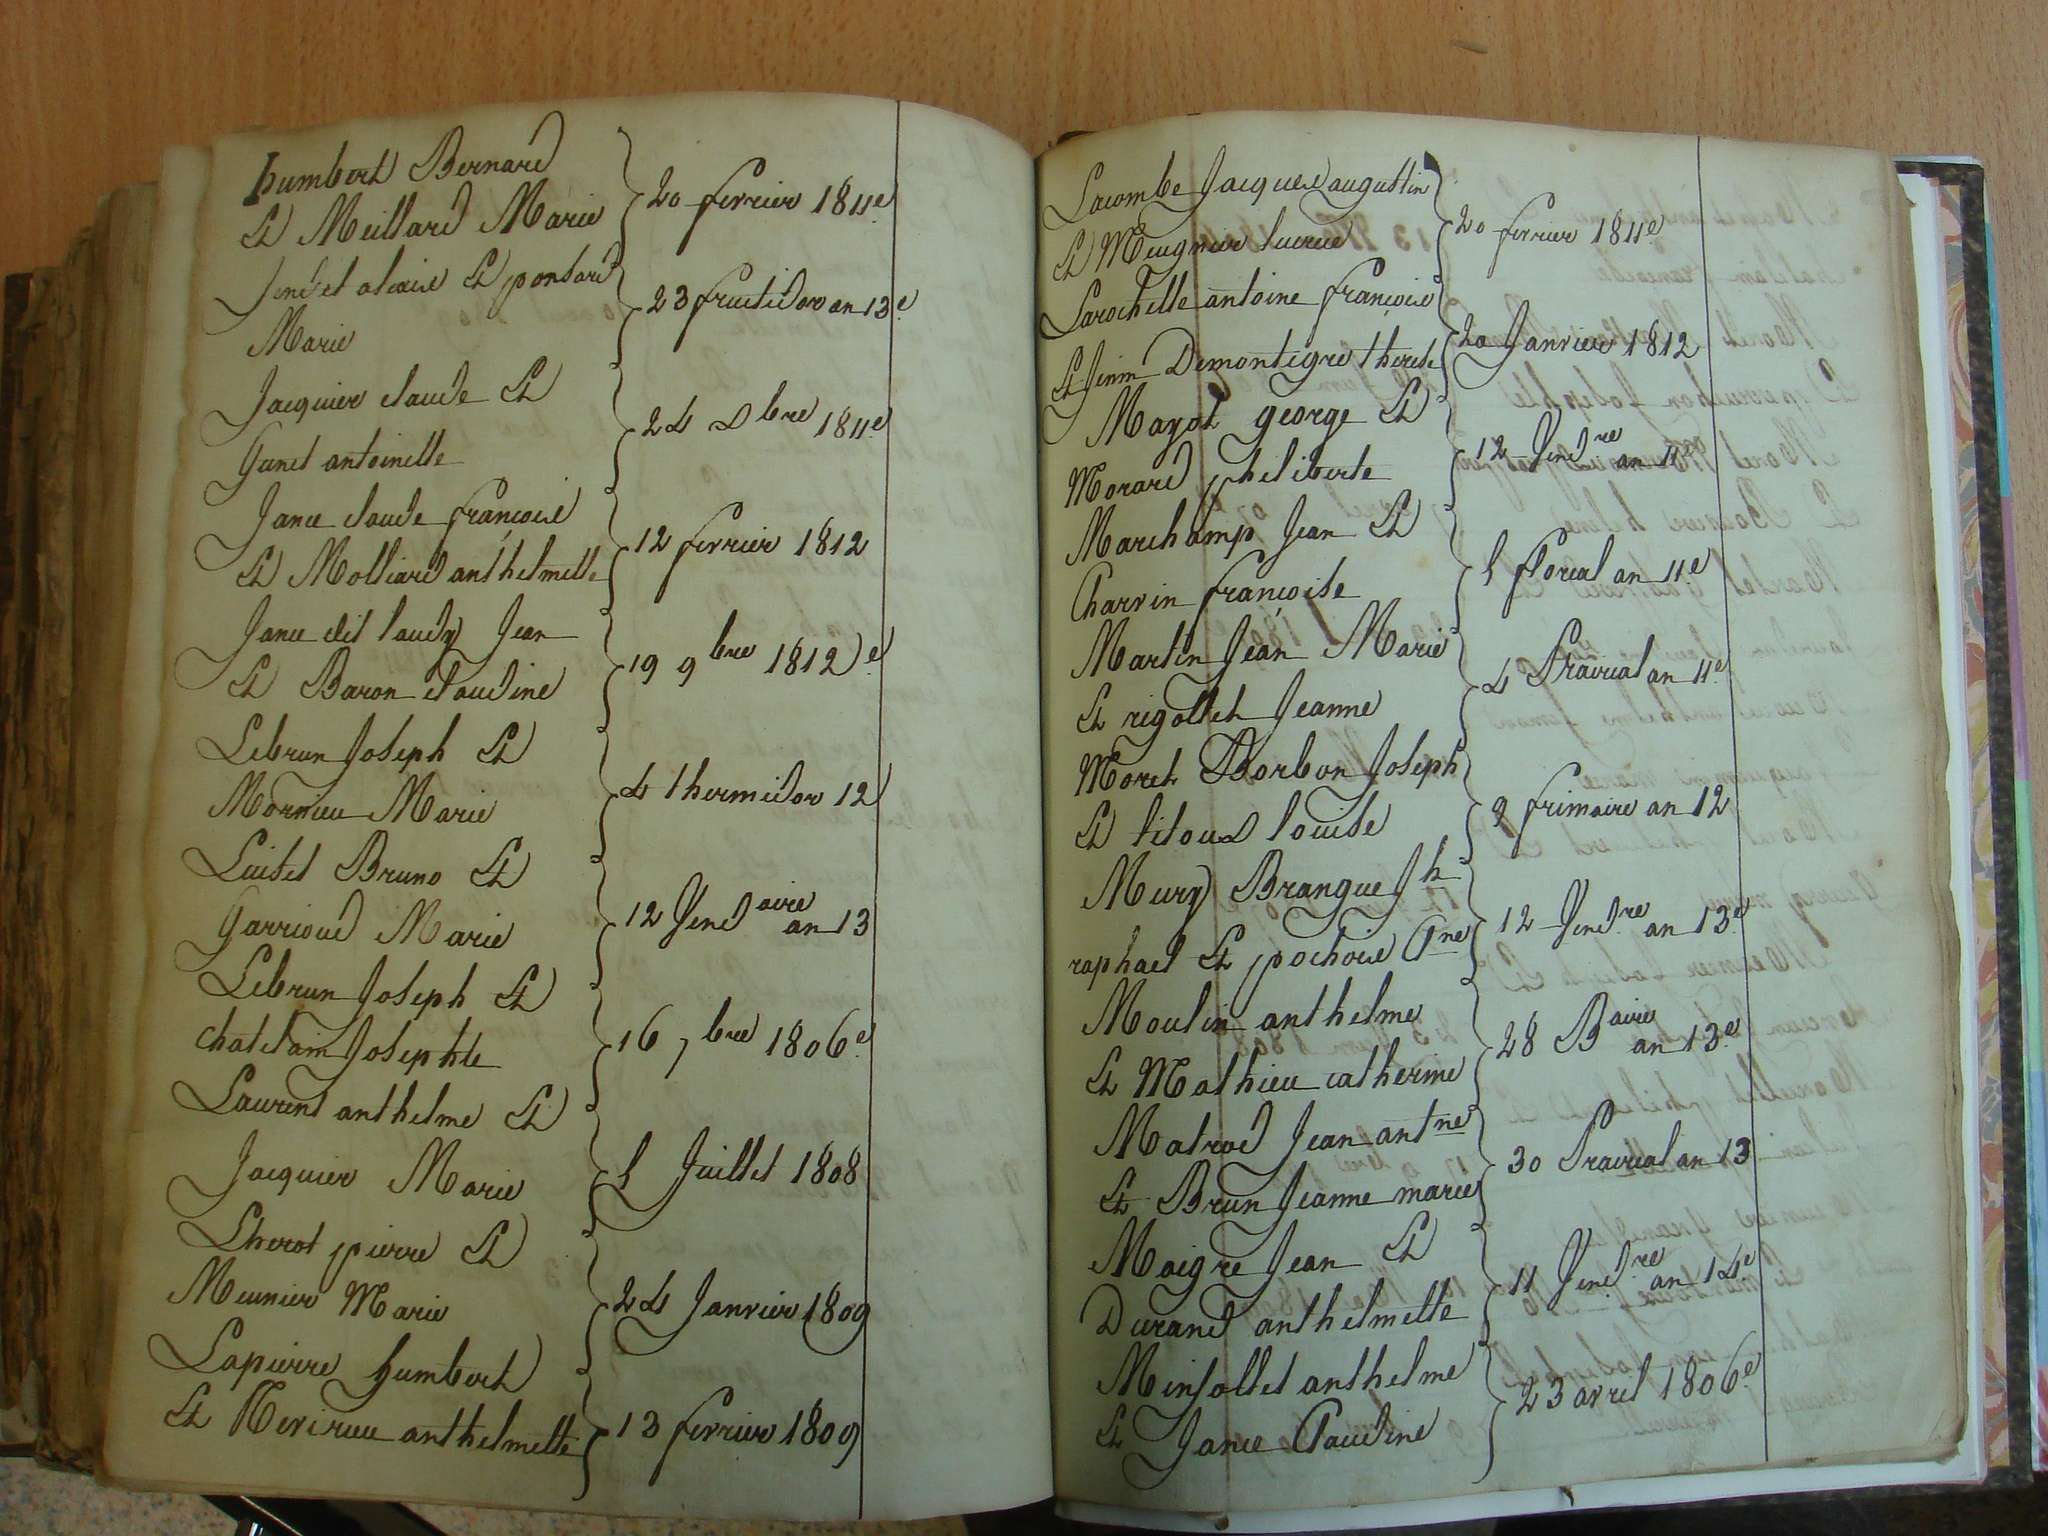 humbert Bernard
Et Meillard Marie
20 fevrier 1811e
Jendet alexis Et ponsard
Marie
23 fructidor an 13e
Jacquier claude Et
Gunet antoinette
24 Xbre 1811e
Jance claude françoise
Et Molliard anthelmette
12 fevrier 1812
Jance dit laudy Jean
Et Baron claudine
19 9bre 1812e
Lebrun Joseph Et
Mornieu Marie
4 thermidor 12
Luiset Bruno Et
Garrioud Marie
12 Vendaire an 13
Lebrun Joseph Et
chatelain Josephte
16 7bre 1806e
Laurent anthelme Et
Jacquier Marie
1 Juillet 1808
Lherot pierre Et
Meunier Marie
24 Janvier 1809
Lapierre humbert
Et anthelmette
13 fevrier 1809
Lacombe Jacques augustin
Et Meugnier lucrece
20 fevrier 1811e
Larochette antoine françois
Et Jenin Demontegre therese
20 Janvier 1812
Mayot george Et
Morard philiberte
12 Vendre an 11e
Marchamp Jean Et
Charvin françoise
1 floreal an 11e
Martin Jean Marie
Et rigollet Jeanne
4 Prairial an 11e
Moret Borbon Joseph
Et litoud louise
9 frimaire an 12
Mury Brangue Jh
raphael Et pochoie Cne
12 Vendre an 13e
Moulin anthelme
Et Mathieu catherine
28 Baire an 13e
Matrod Jean antne
Et Brun Jeanne marie
30 Prairial an 13
Maigre Jean Et
Durand anthelmette
11 Vendre an 14e
Minjollet anthelme
Et Jance Claudine
23 avril 1806e